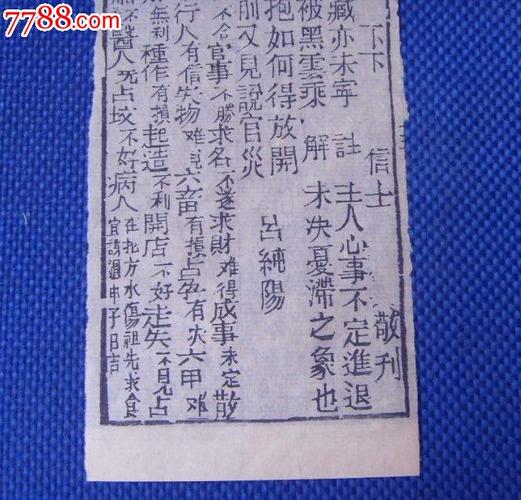 7788.com
下下 信士 敬刊
藏亦未寧 註 主人心事不定進退
被黑雲乘 解 未决憂滞之象也
抱如何得放開 呂純陽
前又見說官災
不合官事不勝求名不遂求財难得成事未定散
行人有信失物难見六畜有損占孕有灾六甲难
無利種作有損起造不利開店不好走失不見占
醫人死占坟不好病人在北方水傷祖先求食
宜謝過申子日吉